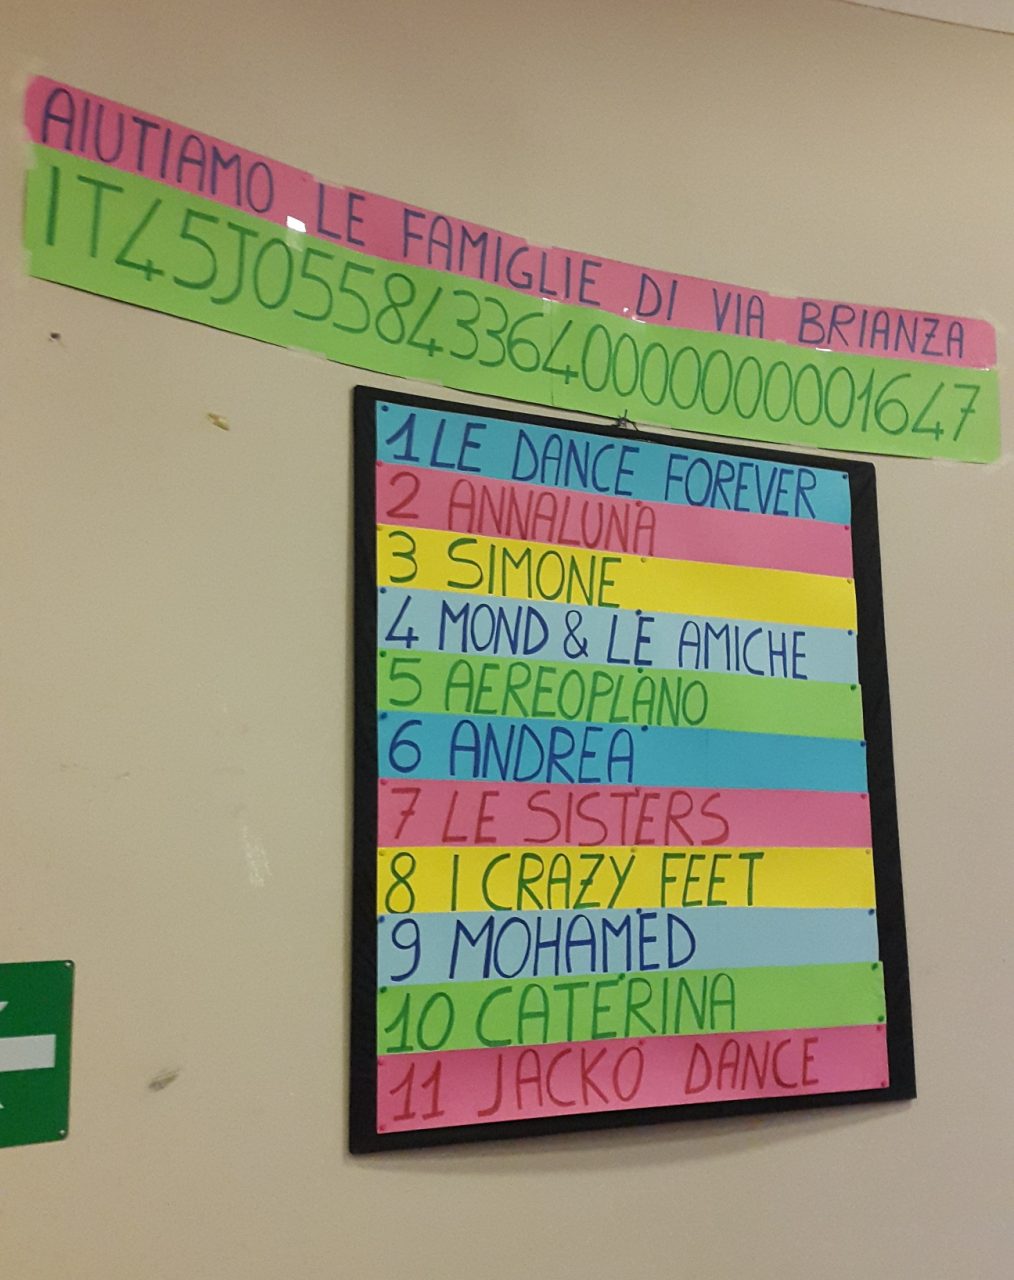 AIUTIAMO LE FAMIGLIE DI VIA BRIANZA
IT45J0558433640000000001647
1 LE DANCE FOREVER
2 ANNALUNA
3 SIMONE
4 MOND & LE AMICHE
5 AEREOPLANO
6 ANDREA
7 LE SISTERS
8 I CRAZY FEET
9 MOHAMED
10 CATERINA
11 JACKO DANCE